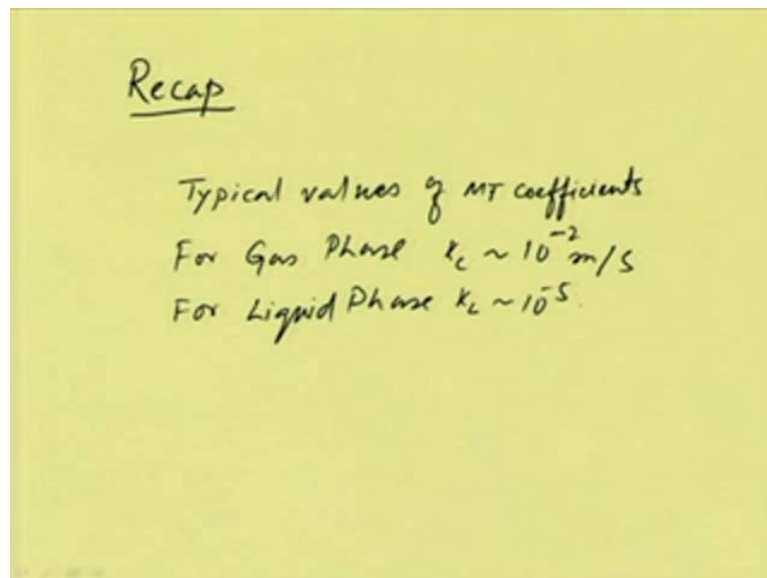 Recap
Typical values of MT coefficients
For Gas Phase k_c ~ 10^-2 m/s
For Liquid Phase k_L ~ 10^-5.